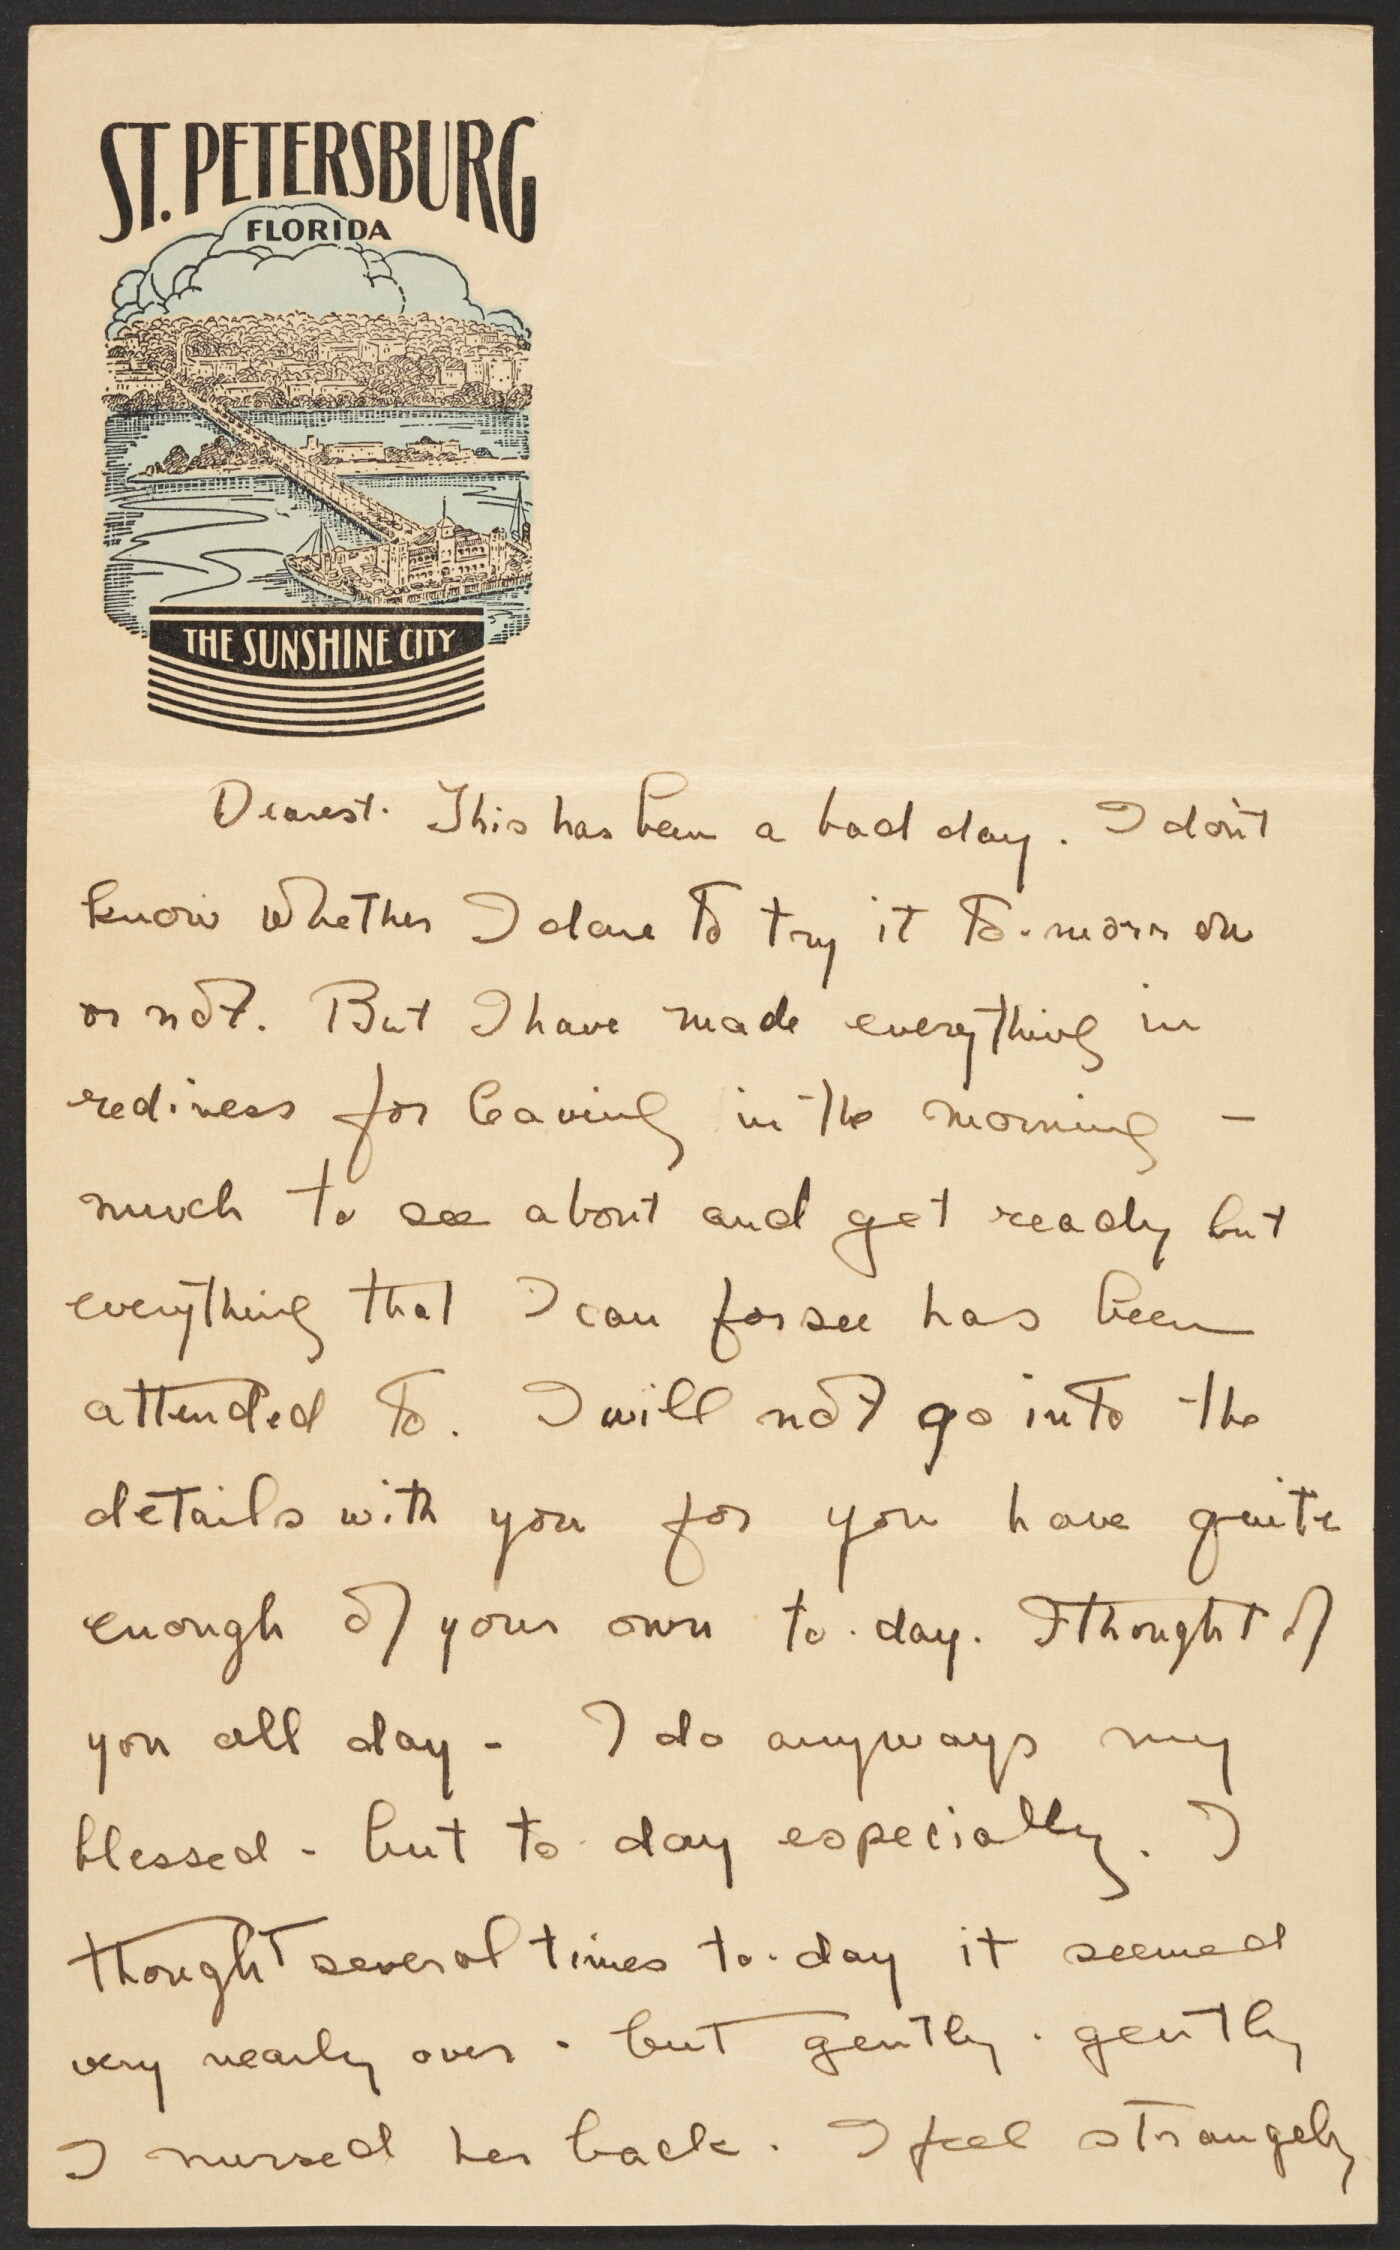 ST. PETERSBURG
FLORIDA
THE SUNSHINE CITY
Dearest. This has been a bad day. I don't
know whether I dare to try it to-morrow
or not. But I have made everything in
rediness for leaving in the morning –
much to see about and get ready but
everything that I can forsee has been
attended to. I will not go into the
details with you for you have quite
enough of your own to-day. I thought of
you all day - I do anyways my
blessed - but to-day especially. I
thought several times to-day it seemed
very nearly over - but gently - gently
I nursed her back. I feel strangely